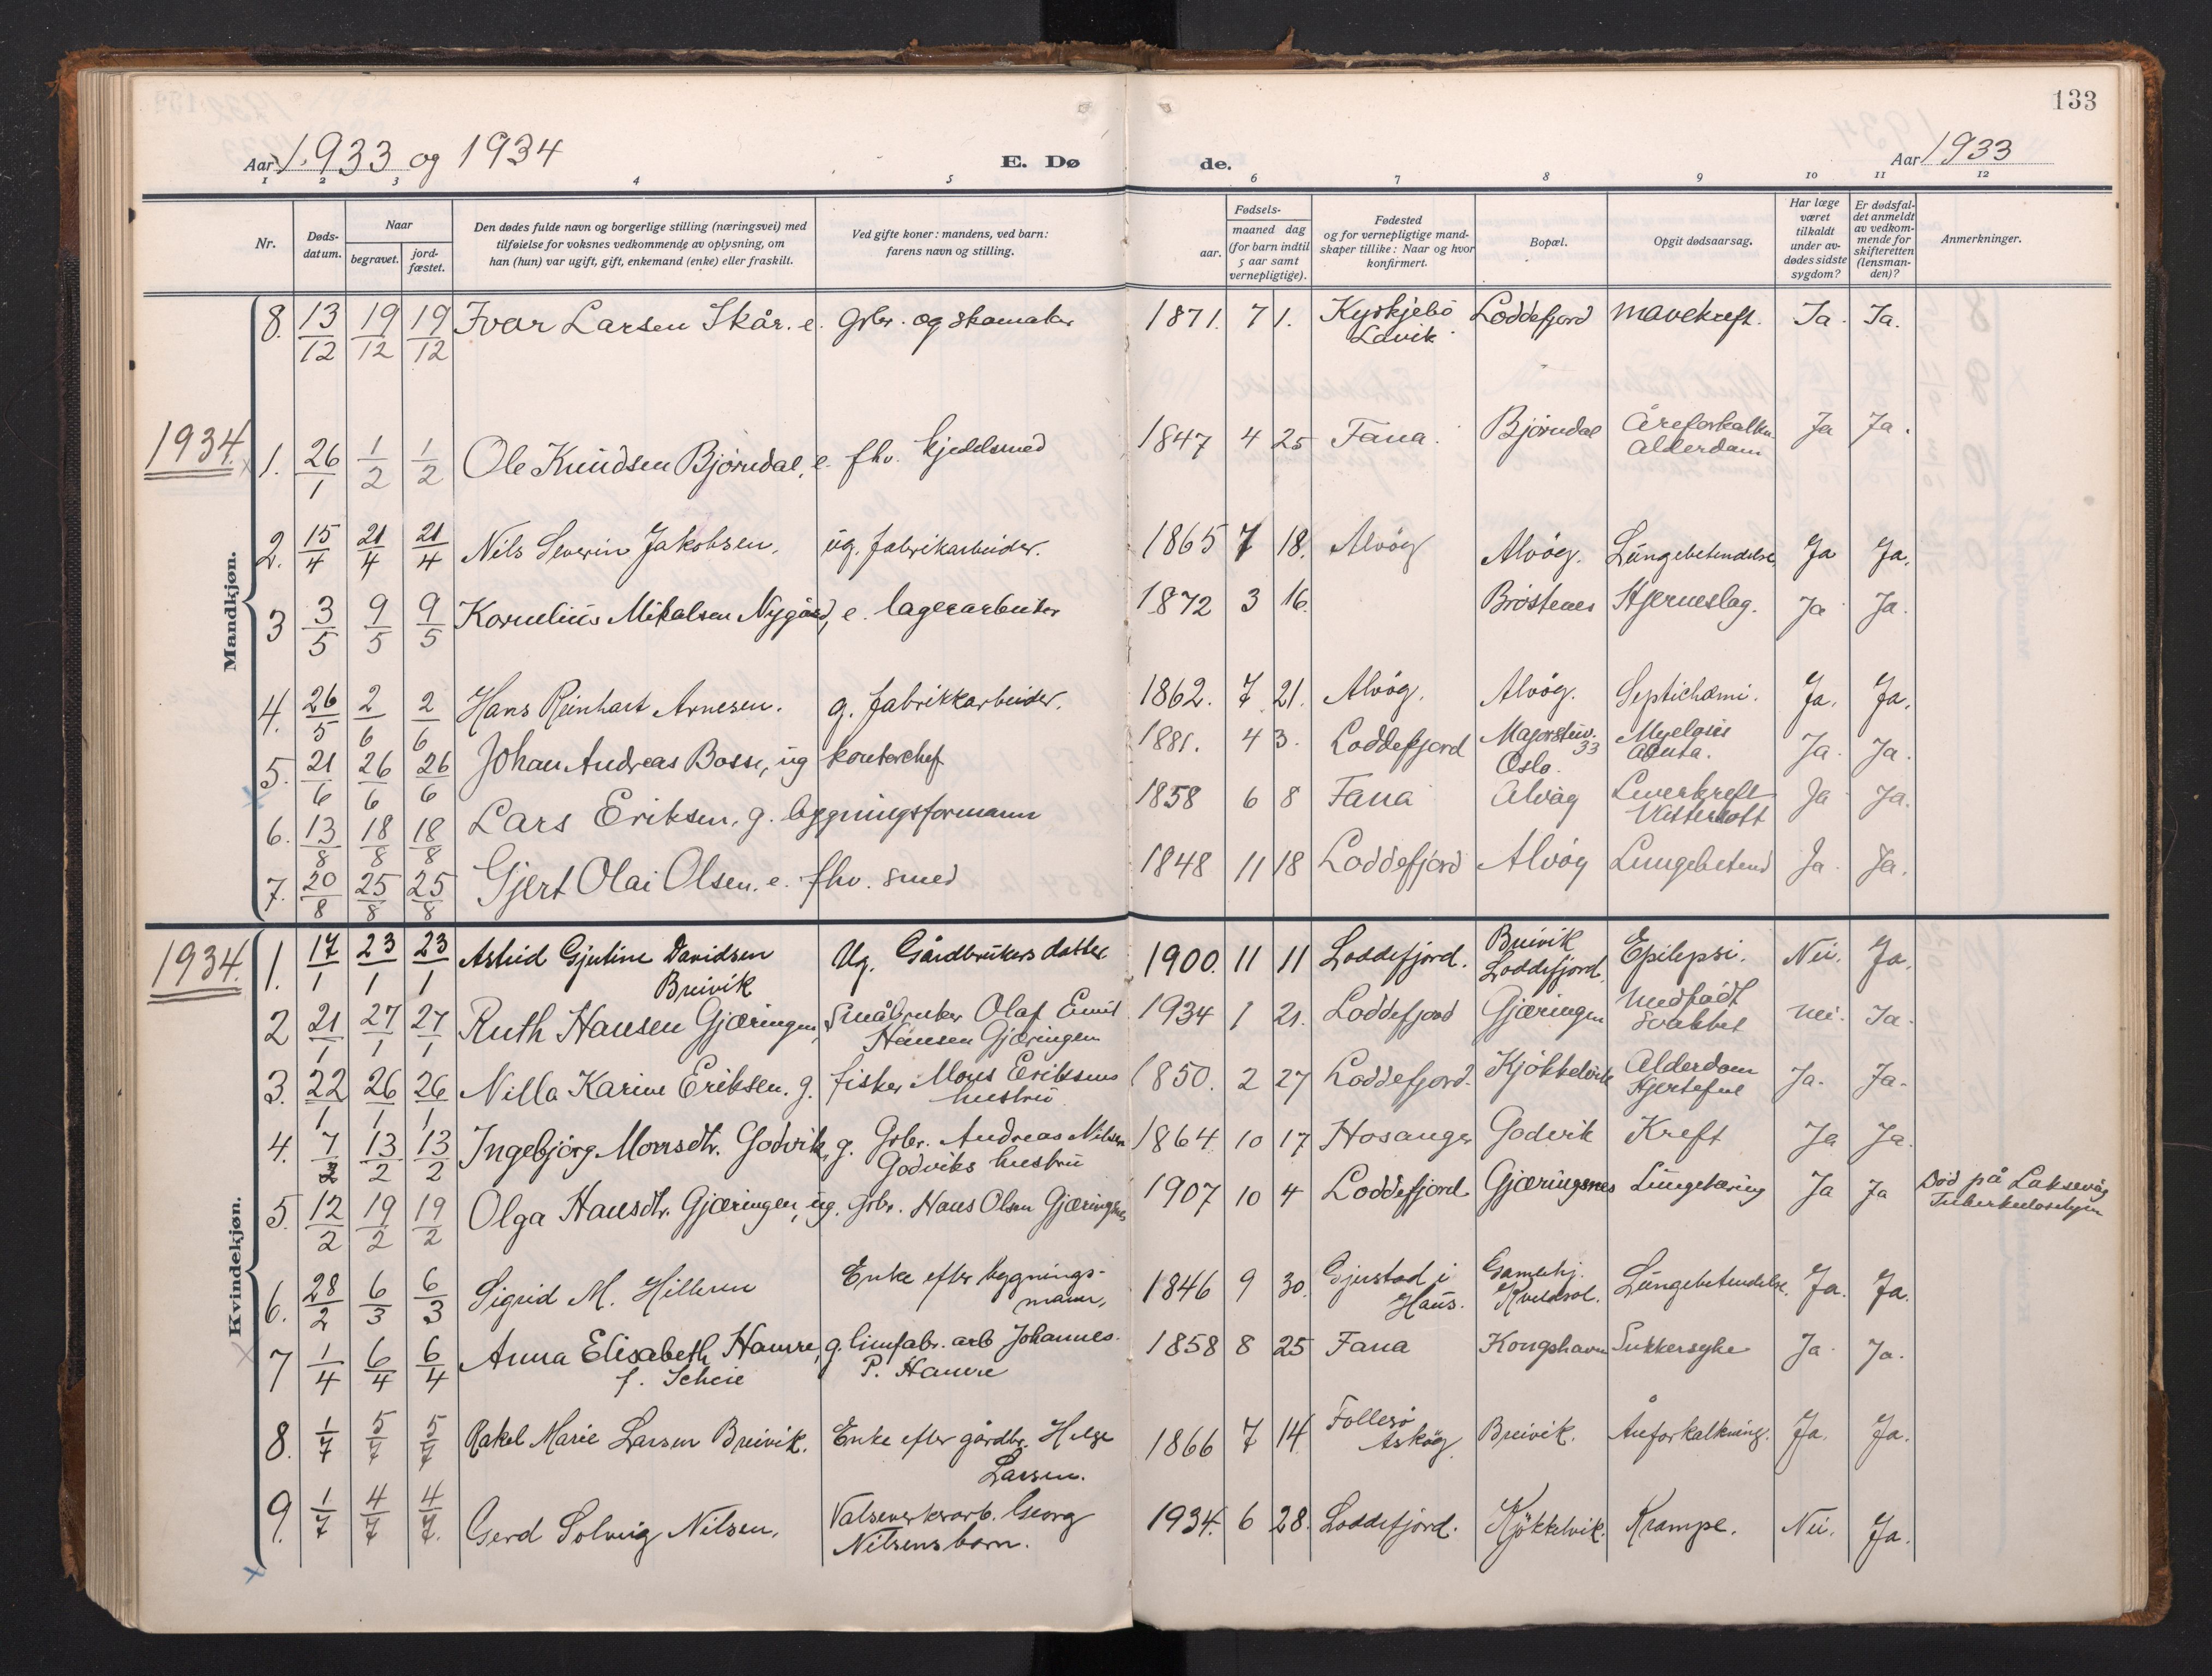 133
Aar 1933 og 1934
E. Dø
de.
Aar 1933
1 2 3 4 5 6 7 8 9 10 11 12
Nr.
Døds-
datum.
Naar
begravet.
jord-
fæstet.
Den dødes fulde navn og borgerlige stilling (næringsvei) med
tilføielse for voksnes vedkommende av oplysning, om
han (hun) var ugift, gift, enkemand (enke) eller fraskilt.
Ved gifte koner: mandens, ved barn:
farens navn og stilling.
Fødsels-
aar.
maaned dag
(for barn indtil
5 aar samt
vernepligtige).
Fødested
og for vernepligtige mand-
skaper tillike: Naar og hvor
konfirmert.
Bopæl.
Opgit dødsaarsag.
Har læge
været
tilkaldt
under av-
dødes sidste
sygdom?
Er dødsfal-
det anmeldt
av vedkom-
mende for
skifteretten
(lensman-
den)?
Anmerkninger.
Mandkjøn.
8. 13/12 19/12 19/12 Ivar Larsen Skår. e. Grbr. og skomaker 1871. 7 1. Kyrkjebö Loddefjord Mavekreft. Ja. Ja.
Lavik
1934.
1. 26/1 1/2 1/2 Ole Knudsen Bjørndal, e. fhv. kjedelsmed 1847 4 25 Fana. Bjørndal Åreforkalkn. Ja Ja.
Alderdom
2. 15/4 21/4 21/4 Nils Severin Jakobsen. ug. fabrikarbeider. 1865 7 18. Alvøy Alvøy. Lungebetendelse. Ja Ja.
3 3/5 9/5 9/5 Kornelius Mikalsen Nygård, e. lagerarbeider 1872 3 16. Brøstenes Hjerneslag. Ja Ja.
4. 26/5 2/6 2/6 Hans Reinhart Arnesen. g. fabrikkarbeider. 1862. 7 21. Alvøy. Alvøy. Septichæmi. Ja. Ja.
5. 21/6 26/6 26/6 Johan Andreas Bosse, ug kontorchef 1881. 4 3. Loddefjord Majorstuv. 33 Myelosis Ja. Ja.
Oslo. acuta.
6. 13/8 18/8 18/8 Lars Eriksen, g. bygningsformann 1858 6 8 Fana Alvøy Leverkreft Ja Ja.
7. 20/8 25/8 25/8 Gjert Olai Olsen. e. fhv. smed 1848 11 18 Loddefjord Alvøy Lungebetend Ja. Ja.
Kvindekjøn.
1934.
1. 17/1 23/1 23/1 Astrid Gjertine Davidsen Ug. Gårdbrukers datter 1900. 11 11 Loddefjord. Breivik Epilepsi. Nei. Ja.
Breivik Loddefjord.
2 21/1 27/1 27/1 Ruth Hansen Gjæringen, Småbruker Olaf Emil 1934 1 21. Loddefjord Gjæringen Medfødt Nei. Ja.
Hansen Gjæringen Svakhet
3. 22/1 26/1 26/1 Nilla Karine Eriksen. g. fisker Mons Eriksens 1850. 2 27 Loddefjord. Kjøkkelvik Alderdom Ja. Ja.
hustru Hjertefeil
4. 7/2 13/2 13/2 Ingebjørg Monsdtr. Godvik, g. Grbr. Andreas Nilsen 1864. 10 17 Hosanger Godvik Kreft Ja Ja.
Godviks hustru
5. 12/2 19/2 19/2 Olga Hansdtr. Gjæringen, ug. Grbr. Hans Olsen Gjæringsnes 1907 10 4 Loddefjord Gjæringsnes Lungetæring Ja Ja Død på Laksevåg
6. 28/2 6/3 6/3 Sigrid M. Hilleren Enke efter bygnings- 1846 9 30. Gjerstad i Gamlehj. Lungebetendelse. Ja. Ja.
mann. Haus. Kveldsol.
7 1/4 6/4 6/4 Anna Elisabeth Hamre, g. limfabr. arb Johannes 1858 8 25 Fana Kongshavn Sukkersyke Ja Ja.
f. Scheie P. Hamre
8. 1/7 5/7 5/7 Rakel Marie Larsen Breivik. Enke efter gårdbr. Helge 1866 7 14 Follesø Breivik. Åreforkalkning. Ja. Ja.
Larsen. Askøy
9. 1/7 4/7 4/7. Gerd Solveig Nilsen. Valseverksarb. Georg 1934. 6 28. Loddefjord. Kjøkkelvik. Krampe. Nei. Ja.
Nilsens barn.